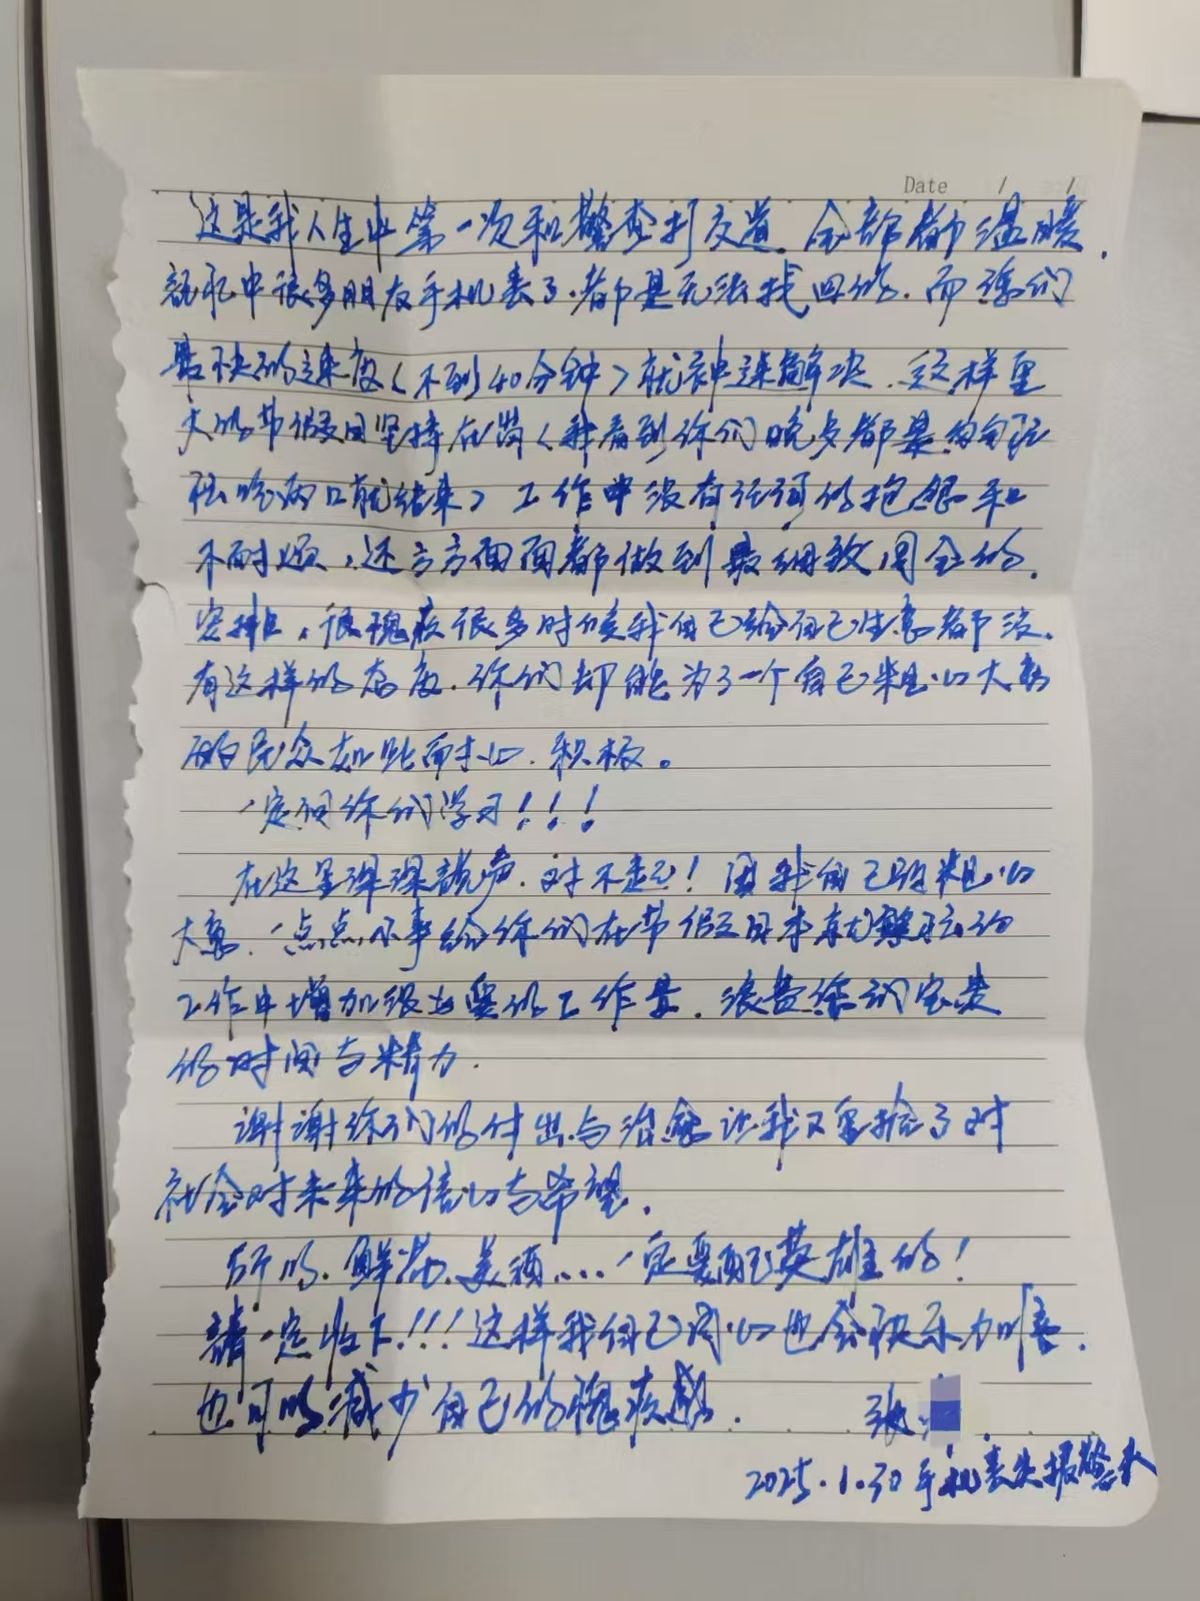 Date / /
这是我人生中第一次和警查打交道.全部都温暖.
记忆中很多朋友手机丢了.都是无法找回的.而你们
最快的速度(不到40分钟)就神速解决.这样重
大的节假日坚持在岗(我看到你们晚夕都是
吃两口就结束)工作中没有任何的抱怨和
不耐烦,还方方面面都做到最细致周全的.
安排.很愧疚很多时候我自己给自己生意都没.
有这样的态度.你们却能为了一个自己粗心大意
的民众如此耐心.积极。
一定向你们学习!!!
在这里深深说声.对不起!因我自己的粗心
大意.一点点小事给你们在节假日本就繁忙的
工作中增加很必要的工作量.浪费你们宝贵
的时间与精力.
谢谢你们的付出与治愈让我又重拾了对
社会对未来的信心与希望.
所以.鲜花.美酒....一定要配英雄的!
请一定收下!!!这样我自己内心也会快乐加倍.
也可以减少自己的愧疚感. 张
2025.1.30手机丢失报警人